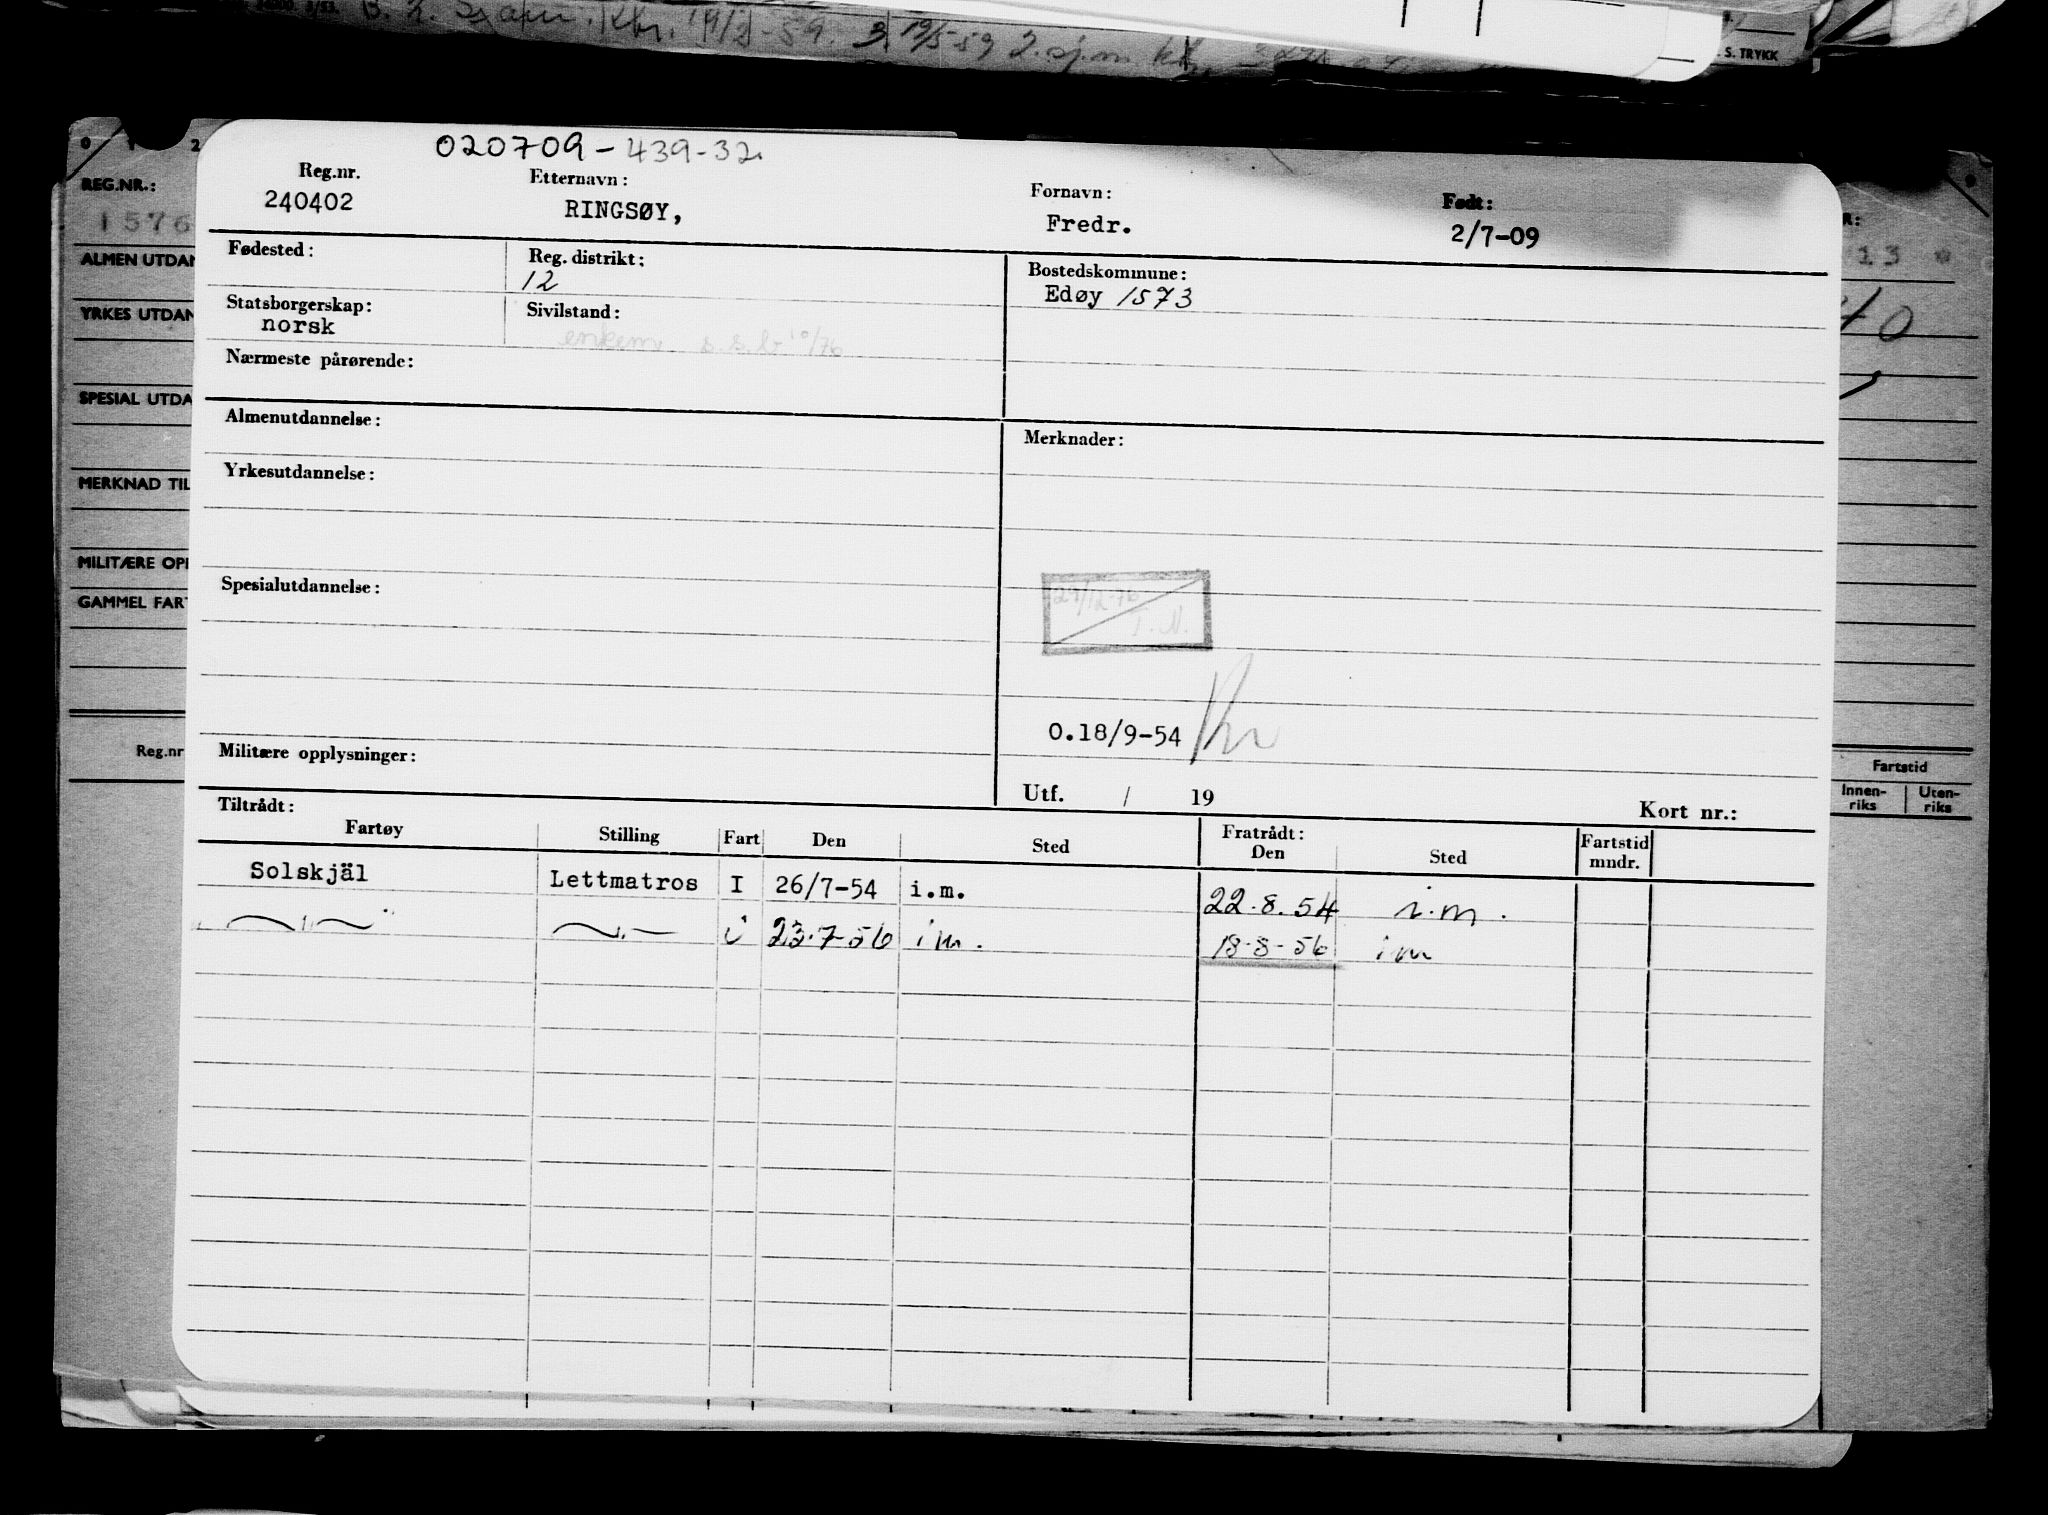 19/2-59. 3 19/5-59 2.
S. TRYKK
0 1 2
REG.NR.:
1576
ALMEN UTDAN
YRKES UTDAN
SPESIAL UTDA
MERKNAD TIL
MILITÆRE OPP
GAMMEL FART
Reg.nr
020709-439-32
Reg.nr. Etternavn: Fornavn: Født:
240402 RINGSØY, Fredr. 2/7-09
Fødested: Reg. distrikt: Bostedskommune:
12 Edøy 1573
Statsborgerskap: Sivilstand:
norsk
enkem. s.s.b. 10/76
Nærmeste pårørende:
Almenutdannelse: Merknader:
Yrkesutdannelse:
Spesialutdannelse:
29/12-76
T.N.
O.18/9-54
Militære opplysninger:
Utf. / 19 Kort nr.:
Tiltrådt: Fratrådt:
Fartøy Stilling Fart Den Sted Den Sted Fartstid mndr.
Solskjäl Lettmatros I 26/7-54 i.m. 22.8.54 i.m.
—"— —"— i 23.7-56 i m. 18-8-56 i m
13
40
Fartstid
Innen-riks Uten-riks